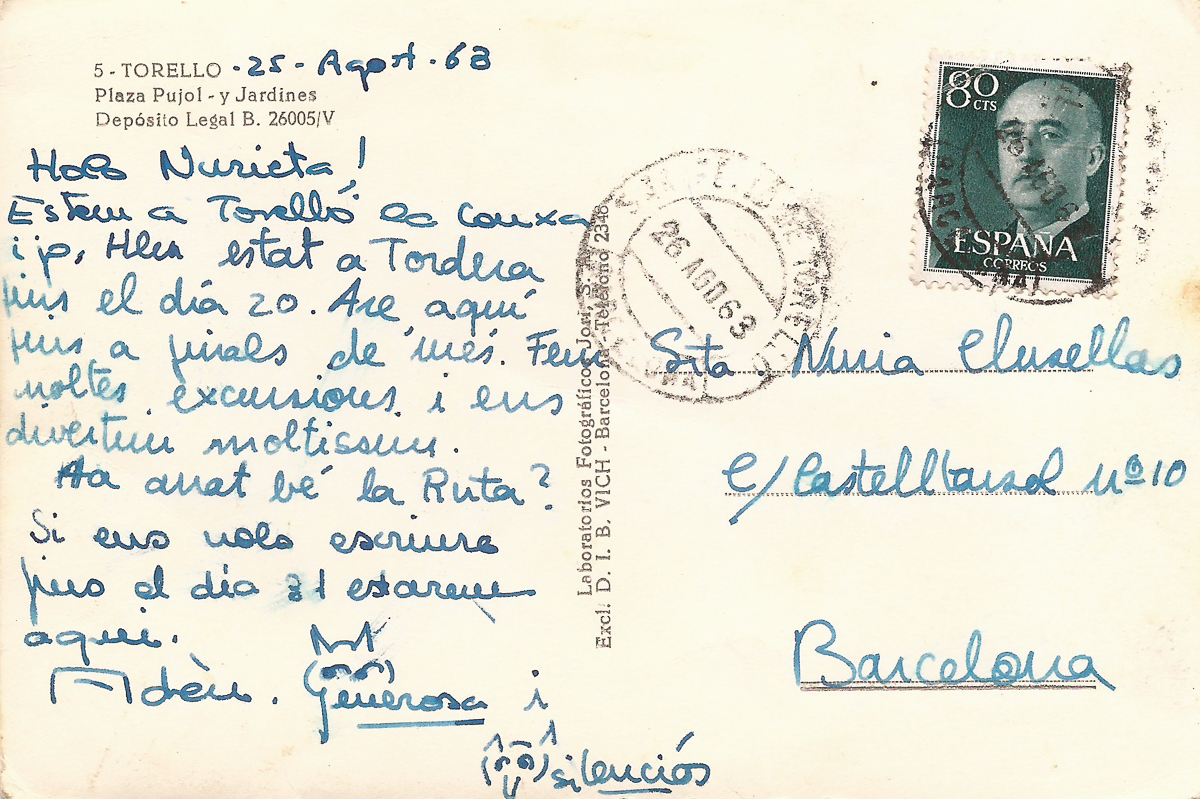 5 - TORELLO · 25 - Agost · 63
Plaza Pujol - y Jardines
Depósito Legal B. 26005/V
Hola Nurieta!
Estem a Torelló la
i jo, Hem estat a Tordera
fins el día 20. Are aquí
fins a finals de més. Fem
moltes excursions i ens
divertim moltissim.
Ha anat bé la Ruta?
Si ens vols escriure
fins el día 31 estarem
aqui.
Adèu. Generosa i
silenciós
Laboratorios Fotográficos Jori, S.
Excl. D. I. B. VICH - Barcelona - Teléfono 2346
DE TORELLO
26 AGO 63
80 CTS
ESPAÑA
CORREOS
Srta. Nuria Clusellas
C/ Castelltersol nº 10
Barcelona